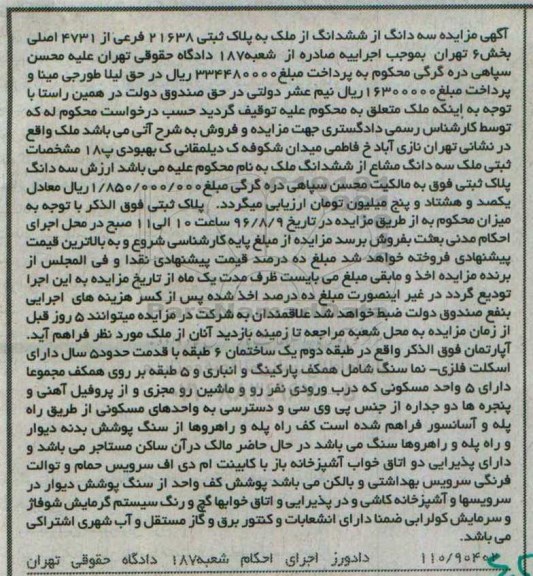 آگهی مزایده سه دانگ از ششدانگ از ملک به پلاک ثبتی ۲۱۶۳۸ فرعی از ۴۷۳۱ اصلی
بخش۶ تهران بموجب اجراییه صادره از شعبه۱۸۷ دادگاه حقوقی تهران علیه محسن
سپاهی دره گرگی محکوم به پرداخت مبلغ۳۳۴۴۸۰۰۰۰ ریال در حق لیلا طورجی مینا و
پرداخت مبلغ۱۶۳۰۰۰۰۰ریال نیم عشر دولتی در حق صندوق دولت در همین راستا با
توجه به اینکه ملک متعلق به محکوم علیه توقیف گردید حسب درخواست محکوم له که
توسط کارشناس رسمی دادگستری جهت مزایده و فروش به شرح آتی می باشد ملک واقع
در نشانی تهران نازی آباد خ فاطمی میدان شکوفه ک دیلمقانی ک بهبودی پ۱۸ مشخصات
ثبتی ملک سه دانگ مشاع از ششدانگ ملک به نام محکوم علیه می باشد ارزش سه دانگ
پلاک ثبتی فوق به مالکیت محسن سپاهی دره گرگی مبلغ ۱/۸۵۰/۰۰۰/۰۰۰ریال معادل
یکصد و هشتاد و پنج میلیون تومان ارزیابی میگردد. پلاک ثبتی فوق الذکر با توجه به
میزان محکوم به از طریق مزایده در تاریخ ۹۶/۸/۹ ساعت ۱۰ الی۱۱ صبح در محل اجرای
احکام مدنی بعثت بفروش برسد مزایده از مبلغ پایه کارشناسی شروع و به بالاترین قیمت
پیشنهادی فروخته خواهد شد مبلغ ده درصد قیمت پیشنهادی نقدا و فی المجلس از
برنده مزایده اخذ و مابقی مبلغ می بایست ظرف مدت یک ماه از تاریخ مزایده به این اجرا
تودیع گردد در غیر اینصورت مبلغ ده درصد اخذ شده پس از کسر هزینه های اجرایی
بنفع صندوق دولت ضبط خواهد شد علاقمندان به شرکت در مزایده میتوانند ۵ روز قبل
از زمان مزایده به محل شعبه مراجعه تا زمینه بازدید آنان از ملک مورد نظر فراهم آید.
آپارتمان فوق الذکر واقع در طبقه دوم یک ساختمان ۶ طبقه با قدمت حدود۵ سال دارای
اسکلت فلزی- نما سنگ شامل همکف پارکینگ و انباری و ۵ طبقه بر روی همکف مجموعا
دارای ۵ واحد مسکونی که درب ورودی نفر رو و ماشین رو مجزی و از پروفیل آهنی و
پنجره ها دو جداره از جنس پی وی سی و دسترسی به واحدهای مسکونی از طریق راه
پله و آسانسور فراهم شده است کف راه پله و راهروها از سنگ پوشش بدنه دیوار
و راه پله و راهروها سنگ می باشد در حال حاضر مالک درآن ساکن مستاجر می باشد و
دارای پذیرایی دو اتاق خواب آشپزخانه باز با کابینت ام دی اف سرویس حمام و توالت
فرنگی سرویس بهداشتی و بالکن می باشد پوشش کف واحد از سنگ پوشش دیوار در
سرویسها و آشپزخانه کاشی و در پذیرایی و اتاق خوابها گچ و رنگ سیستم گرمایش شوفاژ
و سرمایش کولرابی ضمنا دارای انشعابات و کنتور برق و گاز مستقل و آب شهری اشتراکی
می باشد.
دادورز اجرای احکام شعبه۱۸۷ دادگاه حقوقی تهران